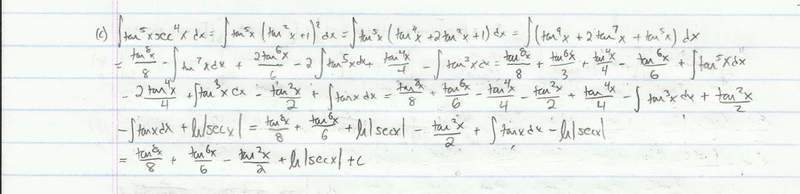 (c) ∫tan⁵x sec⁴x dx = ∫tan⁵x (tan²x+1)² dx = ∫tan⁵x (tan⁴x+2tan²x+1) dx = ∫(tan⁹x + 2tan⁷x + tan⁵x) dx
= tan⁸x/8 - ∫tan⁷x dx + 2tan⁶x/6 - 2∫tan⁵x dx + tan⁴x/4 - ∫tan³x dx = tan⁸x/8 + tan⁶x/3 + tan⁴x/4 - tan⁶x/6 + ∫tan⁵x dx
- 2tan⁴x/4 + ∫tan³x dx - tan²x/2 + ∫tanx dx = tan⁸x/8 + tan⁶x/6 - tan⁴x/4 - tan²x/2 + tan⁴x/4 - ∫tan³x dx + tan²x/2
- ∫tanx dx + ln|secx| = tan⁸x/8 + tan⁶x/6 + ln|secx| - tan²x/2 + ∫tanx dx - ln|secx|
= tan⁸x/8 + tan⁶x/6 - tan²x/2 + ln|secx| + c